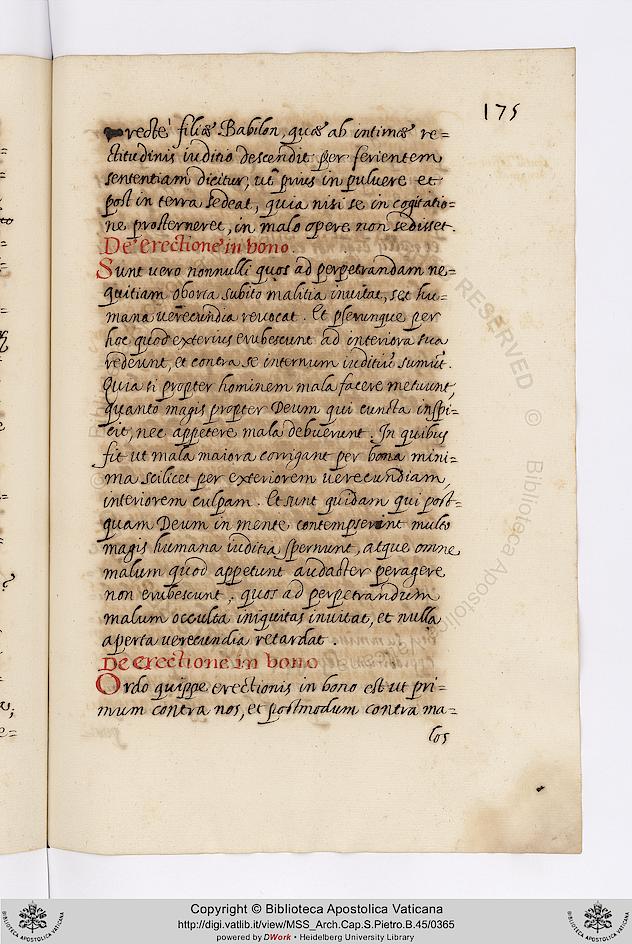 175
recte filiæ Babilon, quæ ab intimæ re=
ctitudinis iuditio descendit per ferientem
sententiam dicitur, ut prius in puluere et
post in terra sedeat, quia nisi se in cogitatio=
ne prosterneret, in malo opere non sedisset.
De erectione in bono
Sunt uero nonnulli quos ad perpetrandam ne=
quitiam oborta subito malitia inuitat, set hu=
mana uerecundia reuocat. Et plerunque per
hoc quod exterius erubescunt ad interiora sua
redeunt, et contra se internum iuditiũ sumũt.
Quia si propter hominem mala facere metuunt,
quanto magis propter Deum qui cuncta inspi=
cit, nec appetere mala debuerunt. In quibus
fit ut mala maiora corrigant per bona mini=
ma scilicet per exteriorem uerecundiam,
interiorem culpam. Et sunt quidam qui post=
quam Deum in mente contempserint multo
magis humana iuditia spernunt, atque omne
malum quod appetunt audacter peragere
non erubescunt, quos ad perpetrandum
malum occulta iniquitas inuitat, et nulla
aperta uerecundia retardat.
De erectione in bono
Ordo quippe erectionis in bono est ut pri=
mum contra nos, et postmodum contra ma=
los
RESERVED © Biblioteca Apostolica
Copyright © Biblioteca Apostolica Vaticana
http://digi.vatlib.it/view/MSS_Arch.Cap.S.Pietro.B.45/0365
powered by DWork • Heidelberg University Library